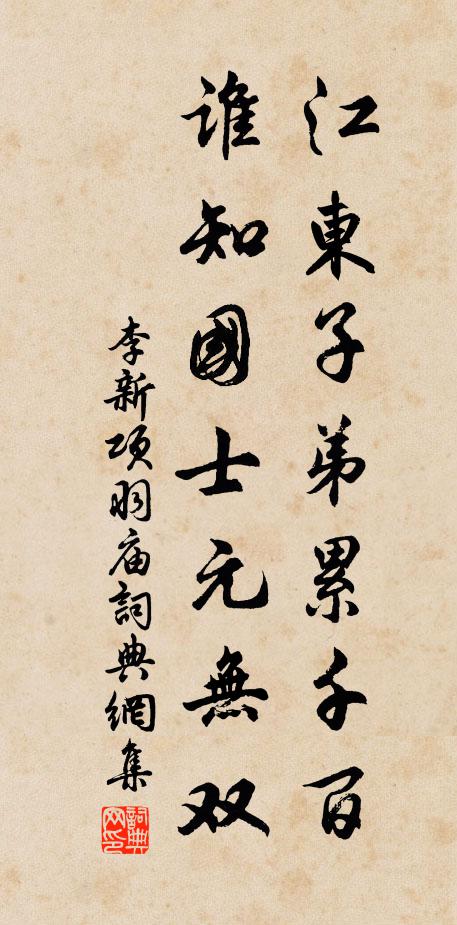 江東子弟累千百
誰知國士元無双
李新項羽庙詞典網集
詞典网印